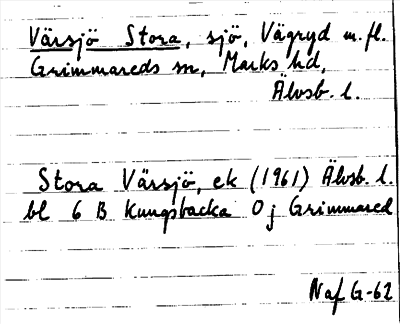 Värsjö Stora, sjö, Vägryd m. fl.
Grimmareds sn, Marks hd,
Älvsb. l.
Stora Värsjö, ek (1961) Älvsb. l.
bl 6 B Kungsbacka 0 j Grimmared
Naf G-62